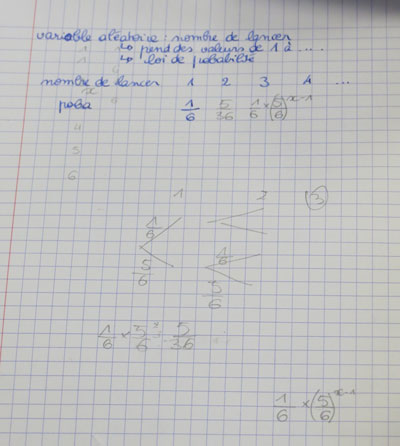 variable aléatoire : nombre de lancer
1 ↳ prend des valeurs de 1 à ....
1 ↳ loi de probabilité
nombre de lancer 1 2 3 4 ...
x
proba 1/6 5/36 1/6 × (5/6)^x-1
4
5
6
1 2 3
1/6
5/6 1/6
5/6
1/6 × 5/6 = 5/36
1/6 × (5/6)^x-1